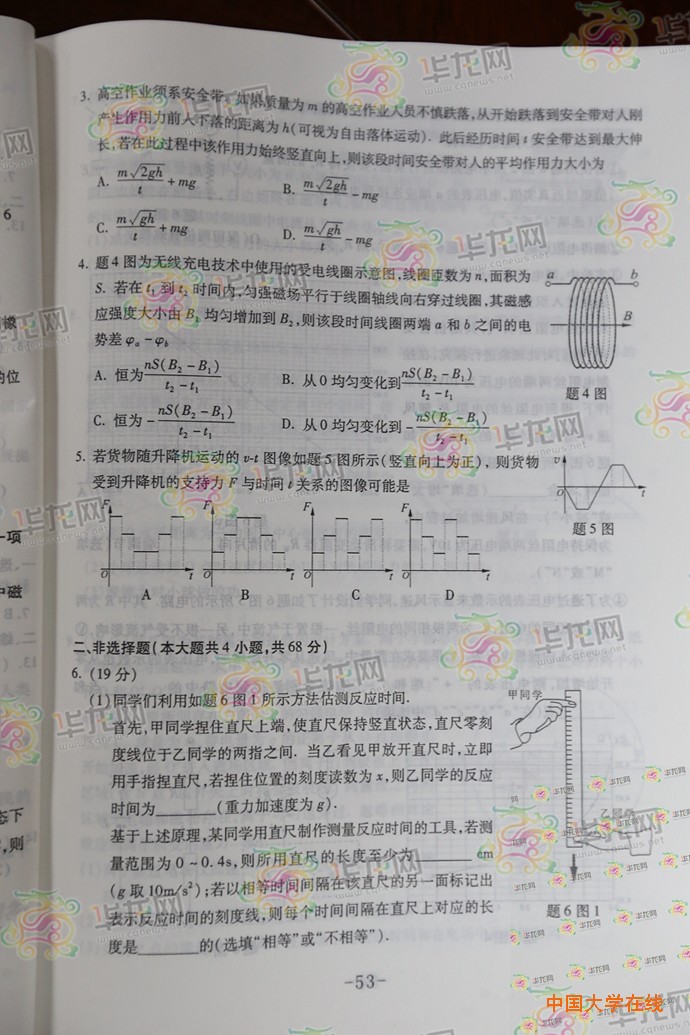 3. 高空作业须系安全带.如果质量为m的高空作业人员不慎跌落,从开始跌落到安全带对人刚
产生作用力前人下落的距离为h(可视为自由落体运动).此后经历时间t安全带达到最大伸
长,若在此过程中该作用力始终竖直向上,则该段时间安全带对人的平均作用力大小为
A. m√2gh/t + mg B. m√2gh/t − mg
C. m√gh/t + mg D. m√gh/t − mg
4. 题4图为无线充电技术中使用的受电线圈示意图,线圈匝数为n,面积为
S. 若在t₁到t₂时间内,匀强磁场平行于线圈轴线向右穿过线圈,其磁感
应强度大小由B₁均匀增加到B₂,则该段时间线圈两端a和b之间的电
势差φₐ−φ_b
A. 恒为nS(B₂−B₁)/(t₂−t₁) B. 从0均匀变化到nS(B₂−B₁)/(t₂−t₁)
C. 恒为−nS(B₂−B₁)/(t₂−t₁) D. 从0均匀变化到−nS(B₂−B₁)/(t₂−t₁)
a b
B
题4图
5. 若货物随升降机运动的v-t图像如题5图所示(竖直向上为正),则货物
受到升降机的支持力F与时间t关系的图像可能是
v
O t
题5图
F F F F
O t O t O t O t
A B C D
二、非选择题(本大题共4小题,共68分)
6. (19分)
(1)同学们利用如题6图1所示方法估测反应时间.
首先,甲同学捏住直尺上端,使直尺保持竖直状态,直尺零刻
度线位于乙同学的两指之间. 当乙看见甲放开直尺时,立即
用手指捏直尺,若捏住位置的刻度读数为x,则乙同学的反应
时间为______(重力加速度为g).
基于上述原理,某同学用直尺制作测量反应时间的工具,若测
量范围为0~0.4s,则所用直尺的长度至少为______cm
(g取10m/s²);若以相等时间间隔在该直尺的另一面标记出
表示反应时间的刻度线,则每个时间间隔在直尺上对应的长
度是______的(选填“相等”或“不相等”).
甲同学
乙同学
题6图1
-53-
华龙网
www.cqnews.net
中国大学在线